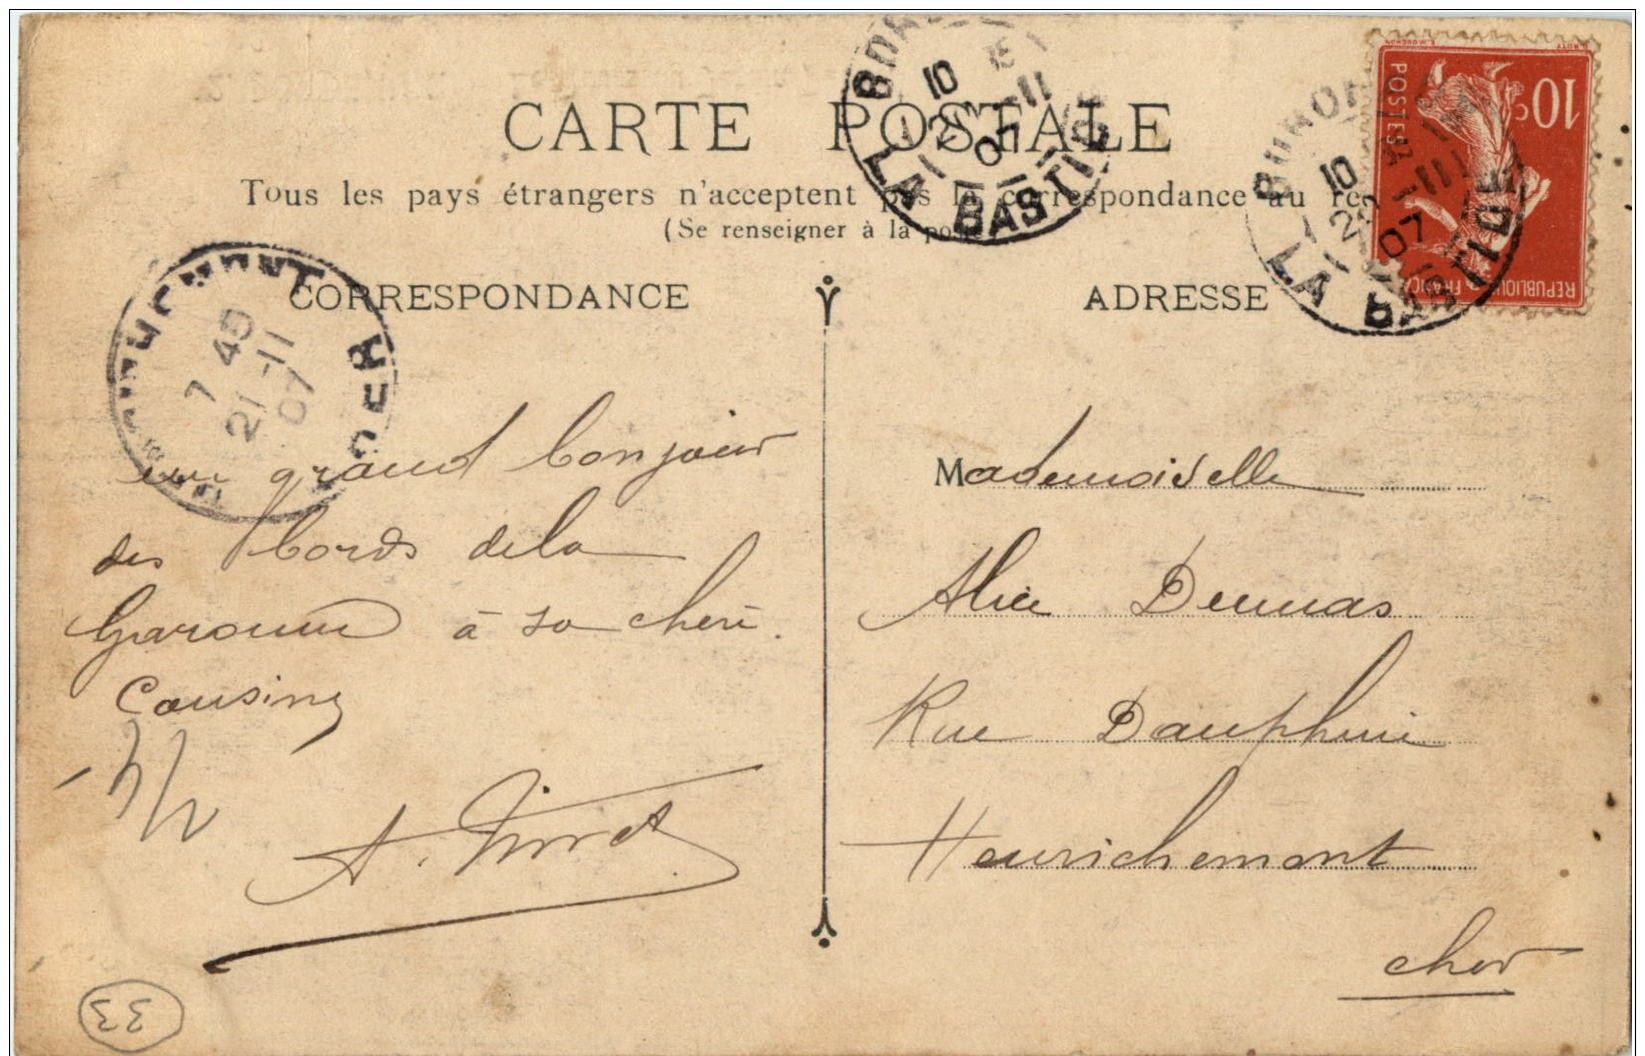 CARTE POSTALE
Tous les pays étrangers n'acceptent pas la correspondance au
(Se renseigner à la poste
CORRESPONDANCE
ADRESSE
10
20 11
07
LA BASTIDE
10
20 11
07
LA BASTIDE
10c
POSTES
REPUBLIQUE FRANC
7 45
21 -11
07
CHER
un grand bonjour
des bords de la
Garonne à sa chère
Cousine
33
Mademoiselle
Alice
Rue Dauphine
Henrichemont
Cher